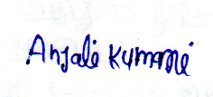 Anjali Kumari